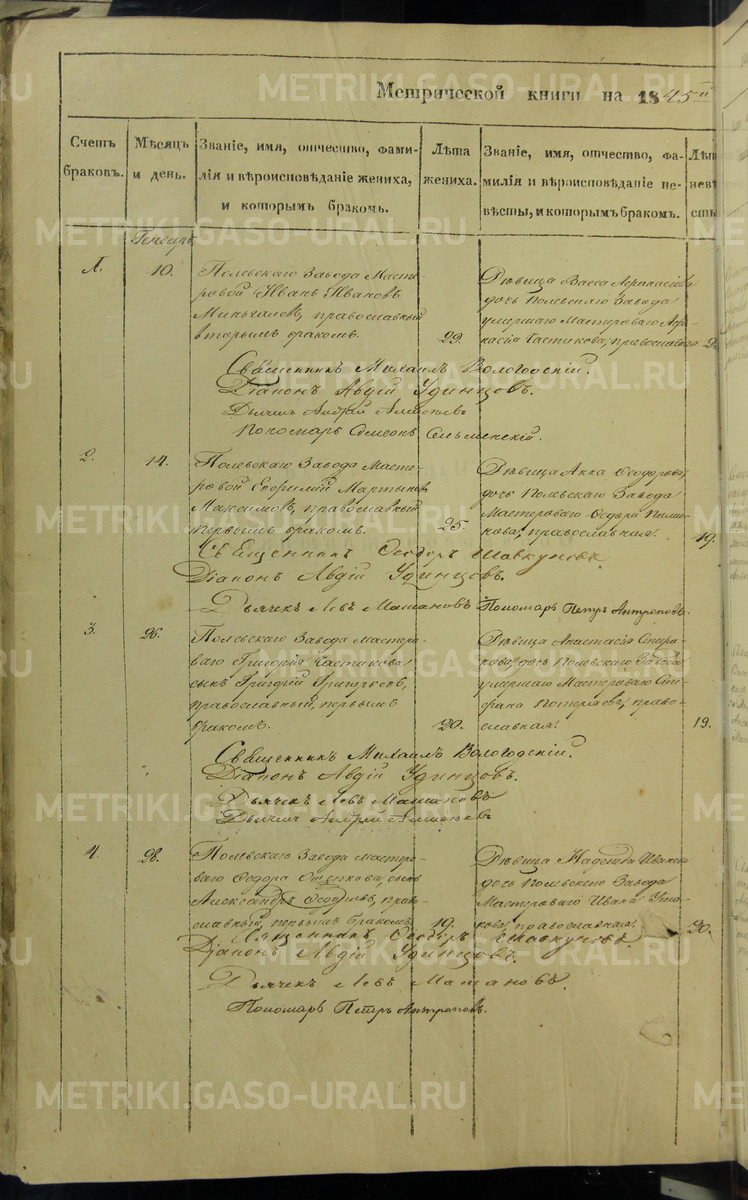 Метрической книги на 1845й
Счетъ браковъ.
Мѣсяцъ и день.
Званіе, имя, отчество, фами-
лія и вѣроисповѣданіе жениха,
и которымъ бракомъ.
Лѣта
жениха.
Званіе, имя, отчество, фа-
милія и вѣроисповѣданіе не-
вѣсты, и которымъ бракомъ.
Лѣт
невѣ
сть
Генварь
1.
10.
Полевскаго Завода Масте-
ровой Иванъ Ивановъ
православный
вторымъ бракомъ.
29.
Дѣвица Васса Афанасіева
дочь Полевскаго Завода
умершаго Мастероваго Афа-
насія Частикова, православная
2
Священникъ Михаилъ Вологодскій.
Діаконъ Авдій Удинцовъ.
Дьячекъ Андрей
Пономарь Симеонъ
2.
14.
Полевскаго Завода Масте-
ровой Евфимій Мартыновъ
Максимовъ, православный
первымъ бракомъ.
25.
Дѣвица Анна Феодорова,
дочь Полевскаго Завода
Мастероваго Федора
православная.
19.
Священникъ Феодоръ Шавкуновъ
Діаконъ Авдій Удинцовъ.
Дьячекъ Левъ Мамановъ
Пономарь Петръ Антроповъ.
3.
26.
Полевскаго Завода Мастеро-
ваго Григорія Частикова
сынъ Григорій Григорьевъ,
православный, первымъ
бракомъ.
20.
Дѣвица Анастасія Стефа-
нова, дочь Полевскаго Завода
умершаго Мастероваго Сте-
фана Потеряева, право-
славная.
19.
Священникъ Михаилъ Вологодскій.
Діаконъ Авдій Удинцовъ.
Дьячекъ Левъ Мамановъ
Дьячекъ Андрей
4.
28.
Полевскаго Завода Мастеро-
ваго Федора сынъ
Александръ Феодоровъ, право-
славный, первымъ бракомъ.
19.
Дѣвица Надежда Иванова
дочь Полевскаго Завода
Мастероваго Ивана
православная.
20.
Священникъ Феодоръ Шавкуновъ
Діаконъ Авдій Удинцовъ.
Дьячекъ Левъ Мамановъ.
Пономарь Петръ Антроповъ.
METRIKI.GASO-URAL.RU